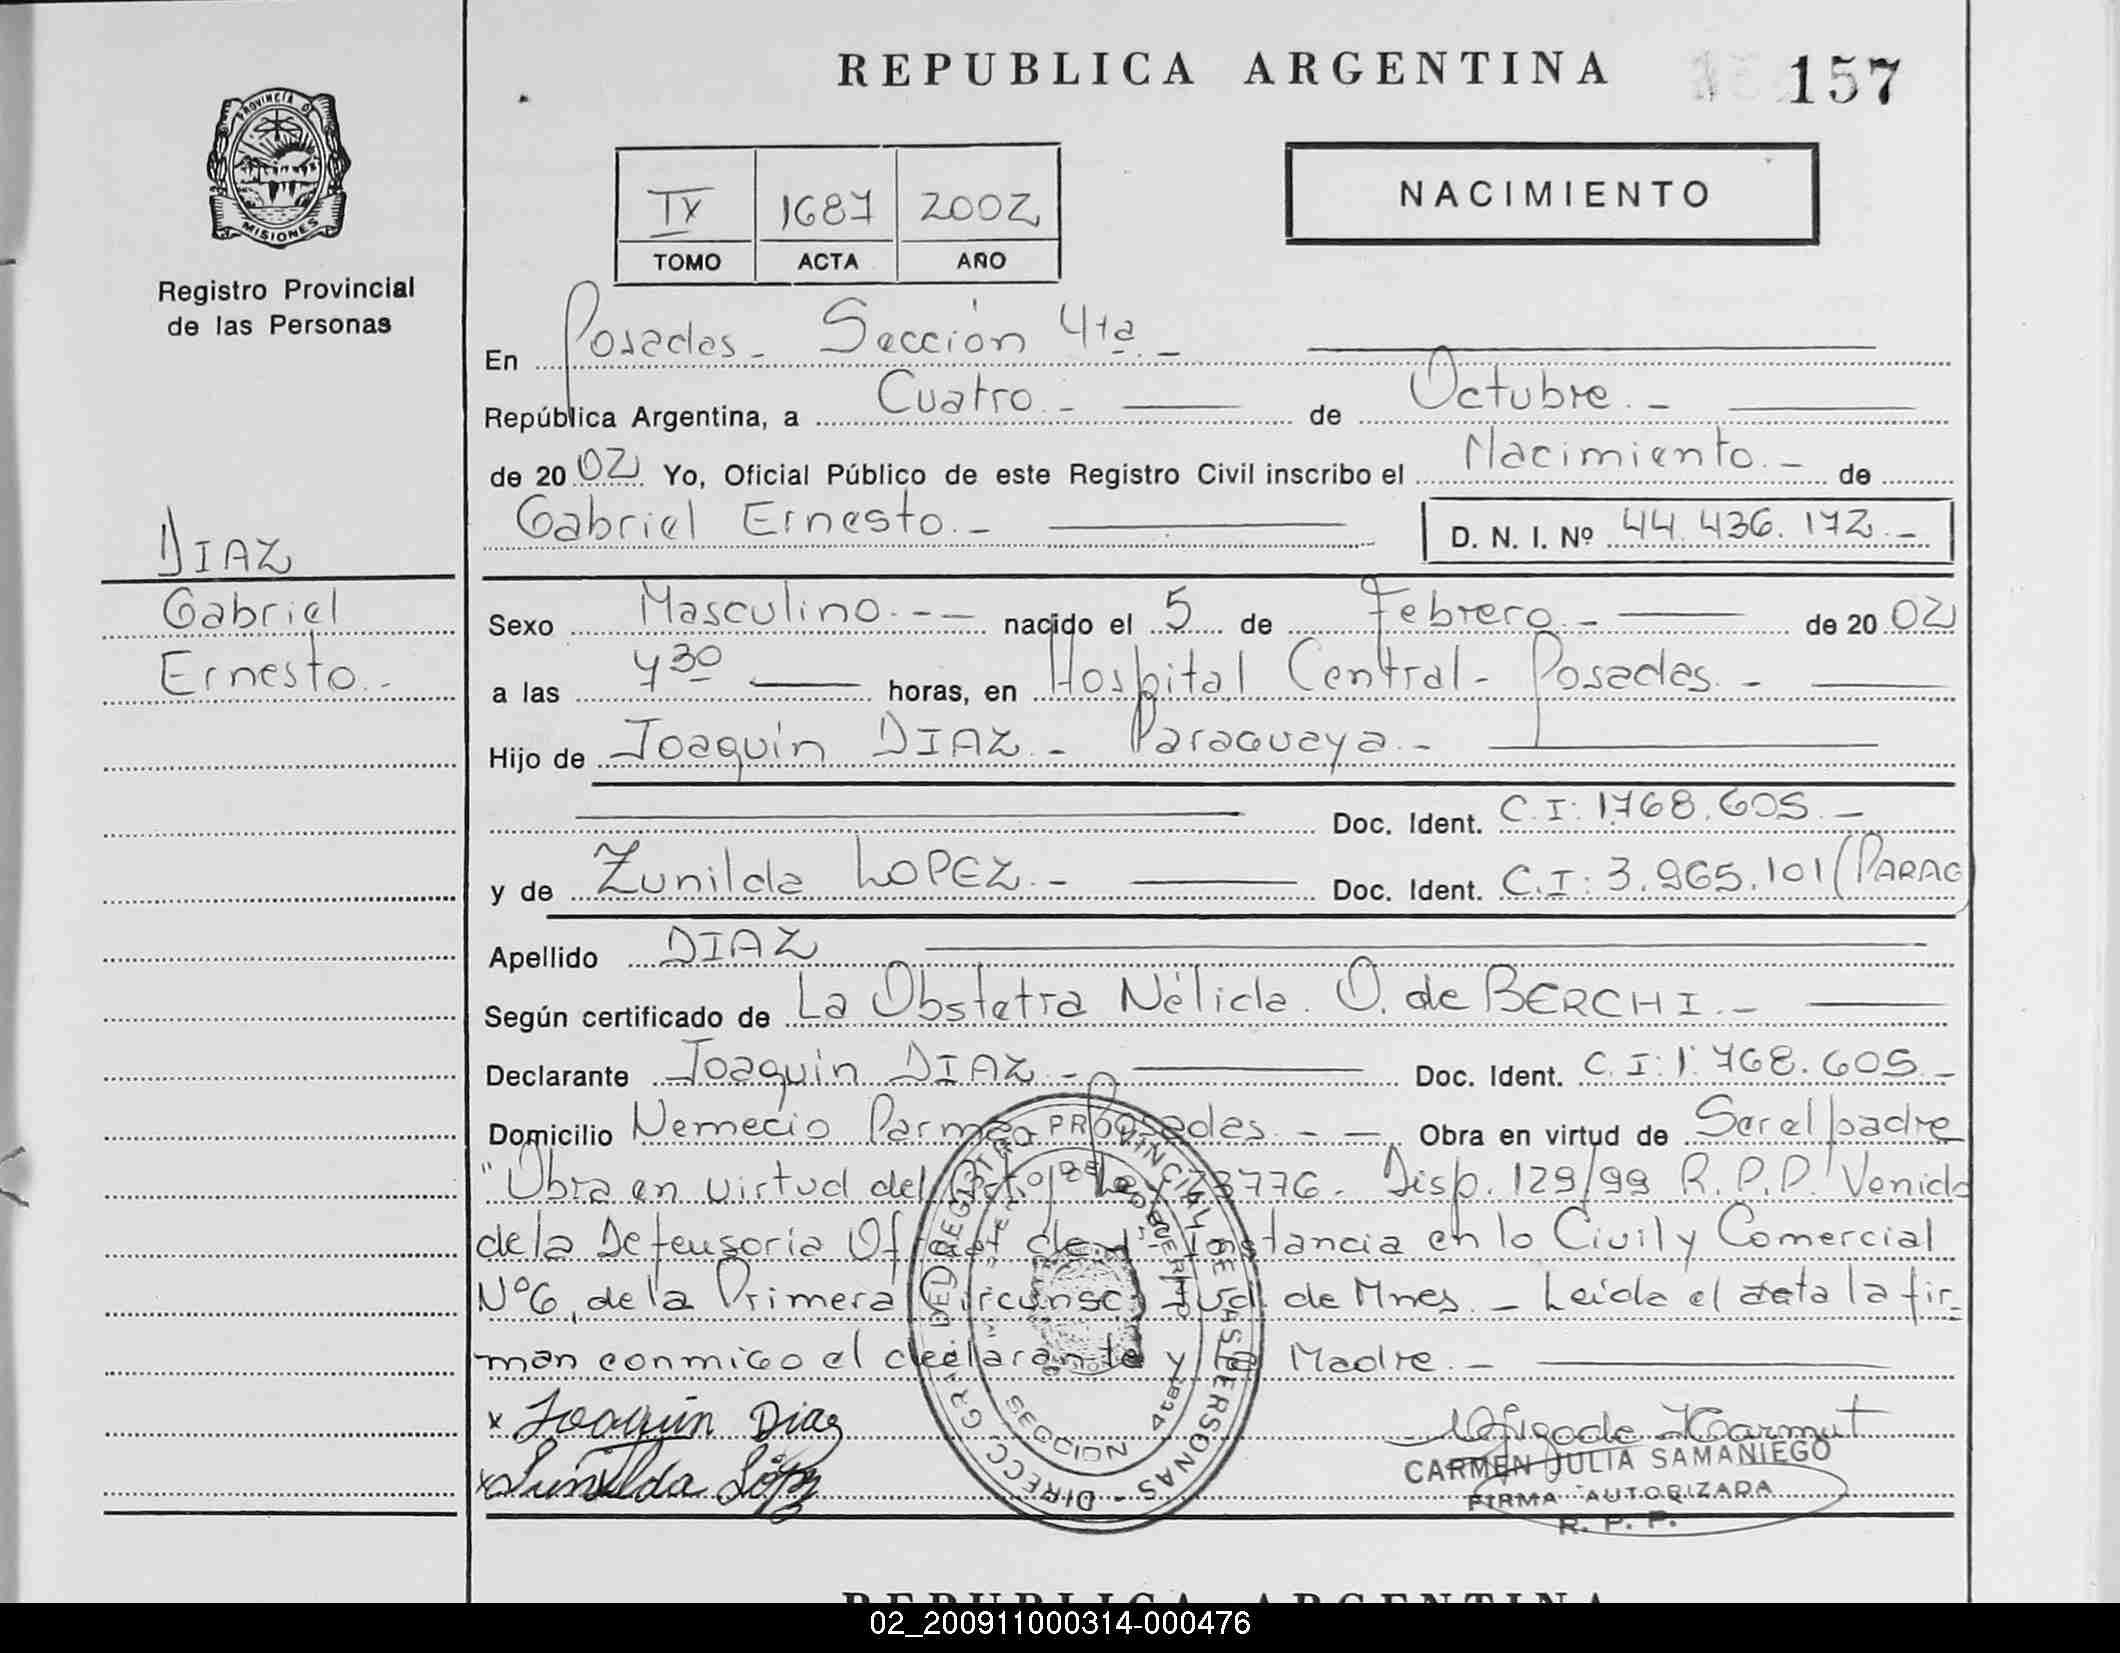 REPUBLICA ARGENTINA
157
PROVINCIA DE
MISIONES
Registro Provincial
de las Personas
IX 1687 2002
TOMO ACTA AÑO
NACIMIENTO
En Posadas - Sección 4ta -
República Argentina, a Cuatro.- de Octubre.-
de 2002 Yo, Oficial Público de este Registro Civil inscribo el Nacimiento.- de
Gabriel Ernesto.- D. N. I. Nº 44.436.172.-
DIAZ
Gabriel
Ernesto.-
Sexo Masculino.- nacido el 5 de Febrero.- de 2002
a las 7 30 horas, en Hospital Central - Posadas.-
Hijo de Joaquín DIAZ.- Paraguaya.-
Doc. Ident. C.I: 1.768.605.-
y de Zunilda LOPEZ.- Doc. Ident. C.I: 3.965.101 (PARAG
Apellido DIAZ
Según certificado de La Obstetra Nélida. O. de BERCHI.-
Declarante Joaquín DIAZ.- Doc. Ident. C.I: 1.768.605.-
Domicilio Nemecio Parma Posadas.- - Obra en virtud de Ser el padre
"Obra en virtud del Ley 23776. Disp. 129/99 R.P.P. Venida
de la Defensoria Of de 1º Instancia en lo Civil y Comercial
Nº6, de la Primera Circunsc. Jud. de Mnes.- Leída el acta la fir-
man conmigo el declarante y la Madre.-
x Joaquín Diaz
x Sunilda López
DIRECC. GRAL. DEL REGISTRO PROVINCIAL DE LAS PERSONAS -
SECCION 4ta
CARMEN JULIA SAMANIEGO
FIRMA AUTORIZADA
R. P. P.
REPUBLICA ARGENTINA
02_200911000314-000476